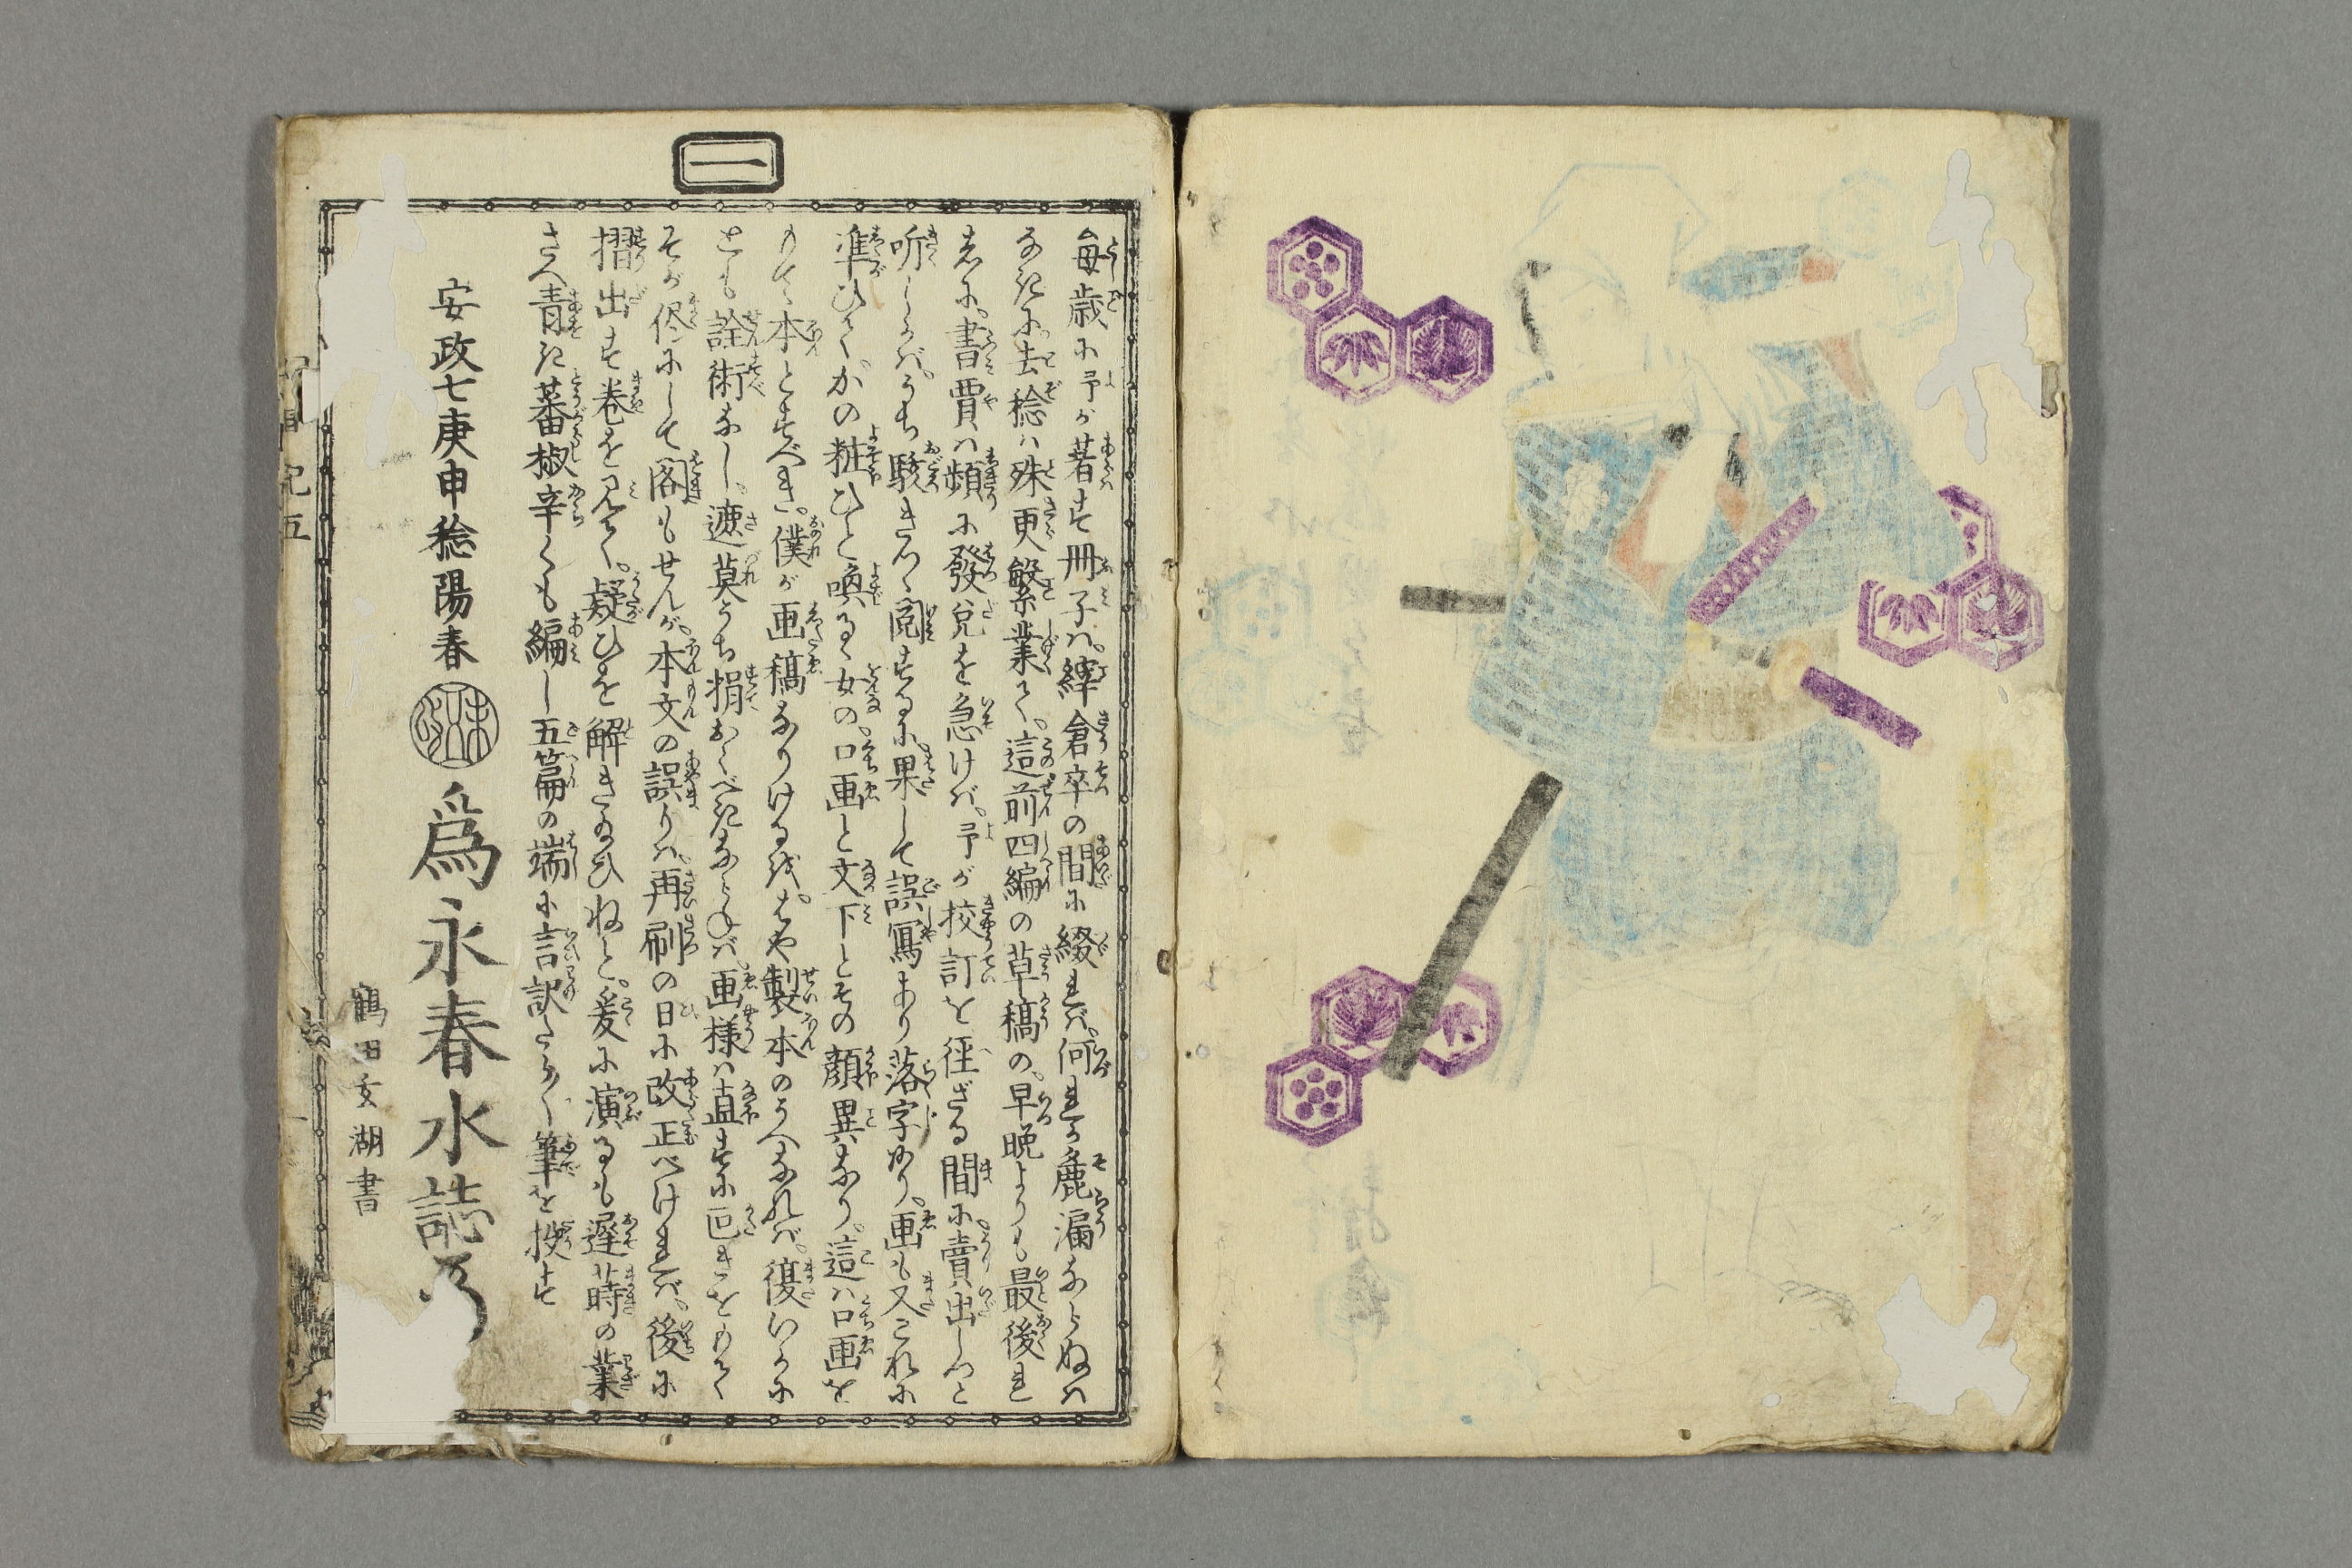 一
毎歳に予が著す冊子ハ。綷倉卒の間に綴れバ。何れか麁漏ならぬハ
なきに。去稔ハ殊更繁業く。這前四編の草稿の。早晩よりも最後れ
しに。書賈ハ頻に發兌を急けバ。予が挍訂を徑ざる間に。賣出しつと
听しかバ。うち駭きつゝ閲するに。果して誤寫あり落字あり。画も又これに
準ひて。かの粧ひと喚るゝ女の。口画と文下とその顔異なり。這ハ口画を
もて本とすべき。僕が画稿なりけるを。はや製本のうへなれバ。復いかに
とも詮術なし。遮莫うち捐おくべきならねバ。画様ハ直すに叵きをもて
そが侭にして閣もせんが。本文の誤りハ。再刷の日に改正べけれバ。後に
摺出す巻を見て。疑ひを解きたまひねと。爰に演るも遅蒔の業
さへ青き蕃椒辛くも編し五篇の端に言訳たら〳〵筆を投す
安政七庚申稔陽春
為永春水誌
鶴田玄湖書
記五